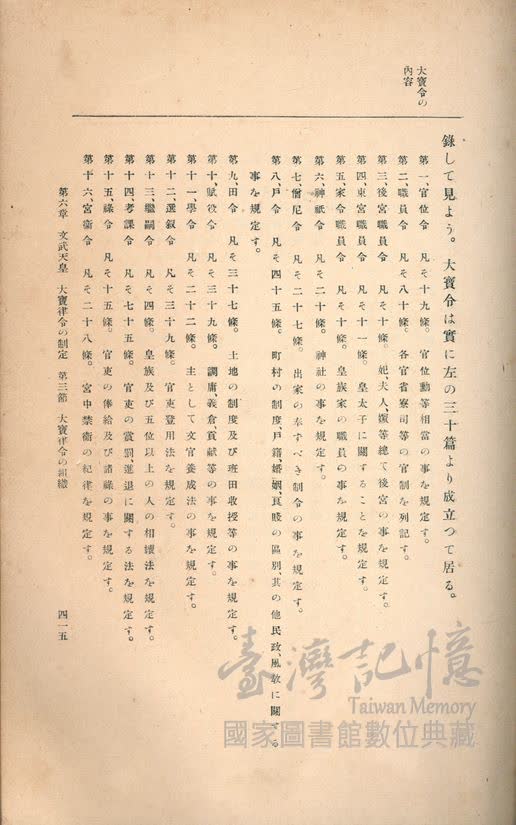 大寶令の
內容
錄して見よう。大寶令は實に左の三十篇より成立つて居る。
第一、官位令　凡そ十九條。官位勳等相當の事を規定す。
第二、職員令　凡そ八十條。各官省寮司等の官制を列記す。
第三、後宮職員令　凡そ十條。妃、夫人、嬪等總て後宮の事を規定す。
第四、東宮職員令　凡そ十一條。皇太子に關することを規定す。
第五、家令職員令　凡そ十條。皇族家の職員の事を規定す。
第六、神祇令　凡そ二十條。神社の事を規定す。
第七、僧尼令　凡そ二十七條。出家の奉ずべき制令の事を規定す。
第八戶令　凡そ四十五條。町村の制度、戶籍、婚姻、良賤の區別其の他民政、風敎に關する
事を規定す。
第九田令　凡そ三十七條。土地の制度及び班田收授等の事を規定す。
第十、賦役令　凡そ三十九條。調庸、義倉、貢獻等の事を規定す。
第十一、學令　凡そ二十二條。主として文官養成法の事を規定す。
第十二、選叙令　凡そ三十九條。官吏登用法を規定す。
第十三、繼嗣令　凡そ四條。皇族及び五位以上の人の相續法を規定す。
第十四考課令　凡そ七十五條。官吏の賞罰、進退に關する法を規定す。
第十五、祿令　凡そ十五條。官吏の俸給及び諸祿の事を規定す。
第十六、宮衞令　凡そ二十八條。宮中禁衞の紀律を規定す。
第六章　文武天皇　大寶律令の制定　第三節　大寶律令の組織
四一五
臺灣記憶
Taiwan Memory
國家圖書館數位典藏